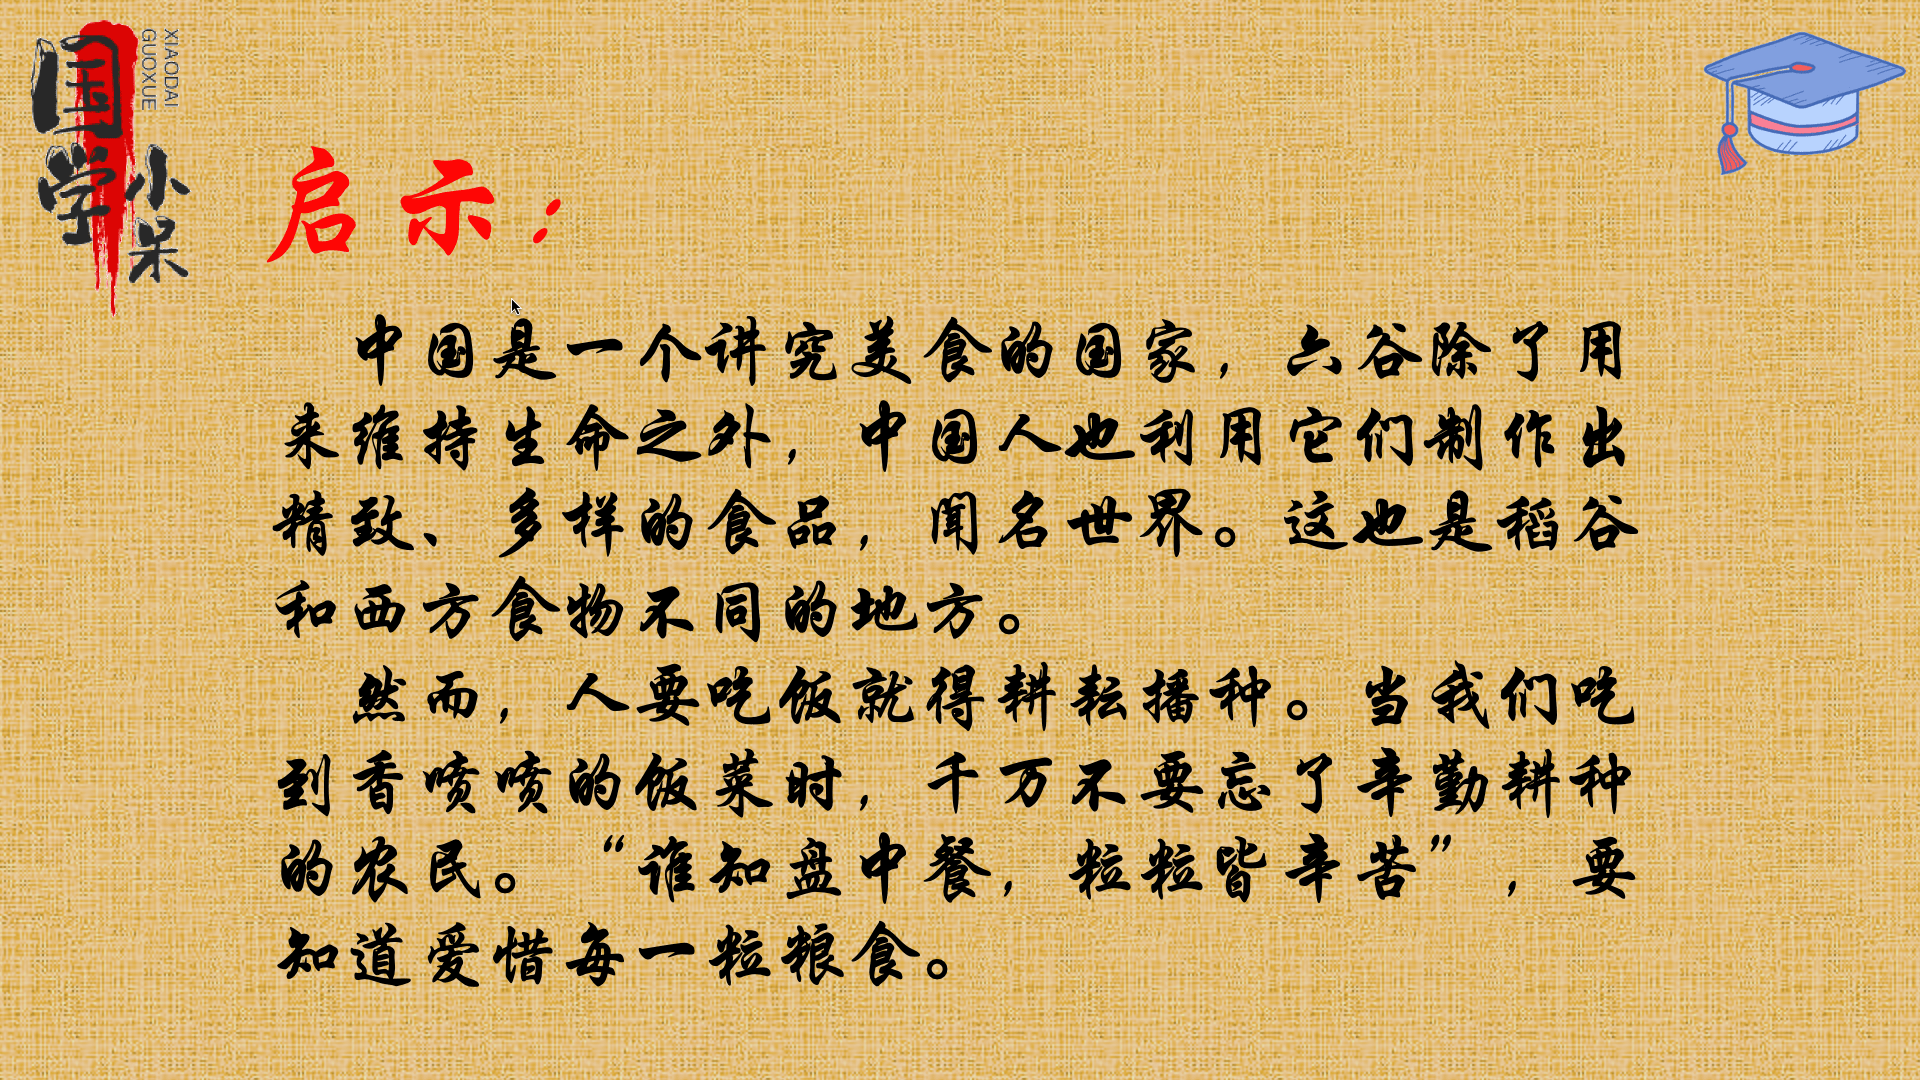 国学
小呆
XIAODAI
GUOXUE
启示：
中国是一个讲究美食的国家，六谷除了用
来维持生命之外，中国人也利用它们制作出
精致、多样的食品，闻名世界。这也是稻谷
和西方食物不同的地方。
然而，人要吃饭就得耕耘播种。当我们吃
到香喷喷的饭菜时，千万不要忘了辛勤耕种
的农民。“谁知盘中餐，粒粒皆辛苦”，要
知道爱惜每一粒粮食。